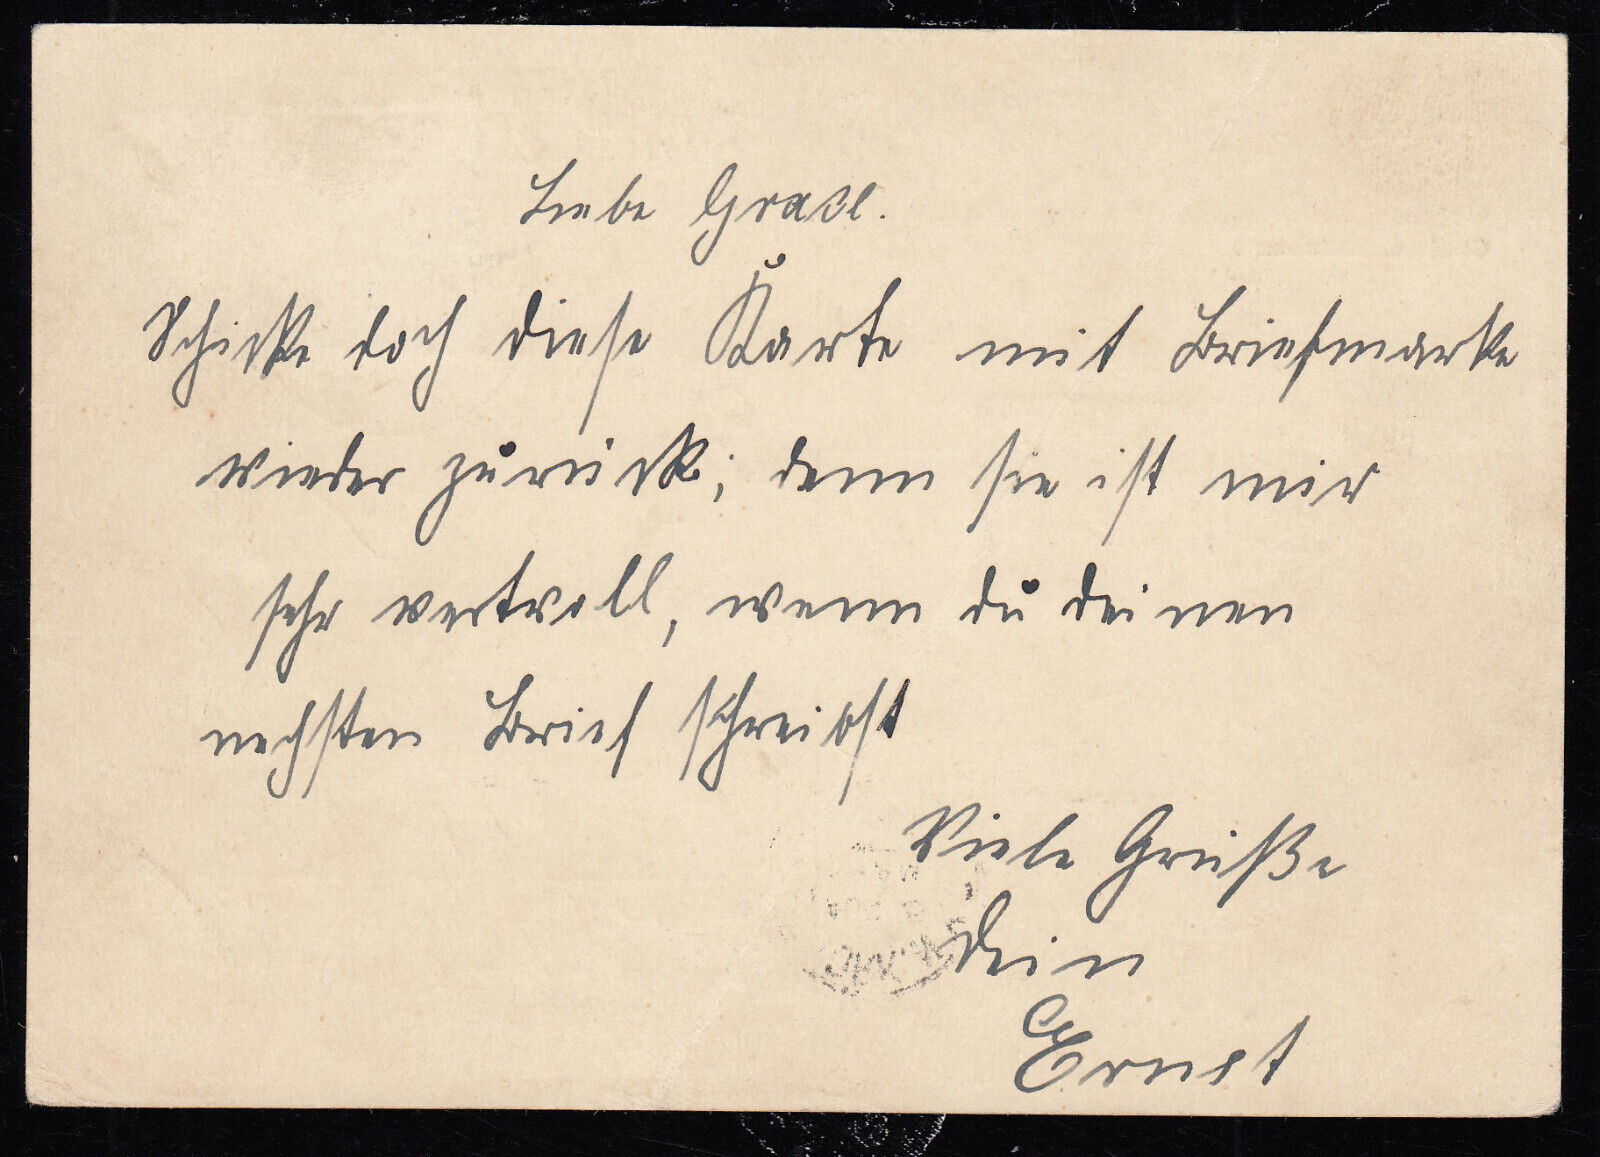 Liebe Gradl.
Schicke doch diese Karte mit Briefmarke
wieder zurück; denn sie ist mir
sehr wertvoll, wenn du deinen
nechsten Brief schreibst
Viele Grüße
Dein
Ernst